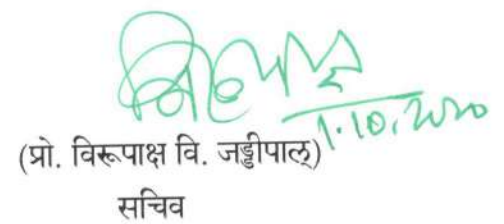 1.10.2020
(प्रो. विरूपाक्ष वि. जड्डीपाल्)
सचिव